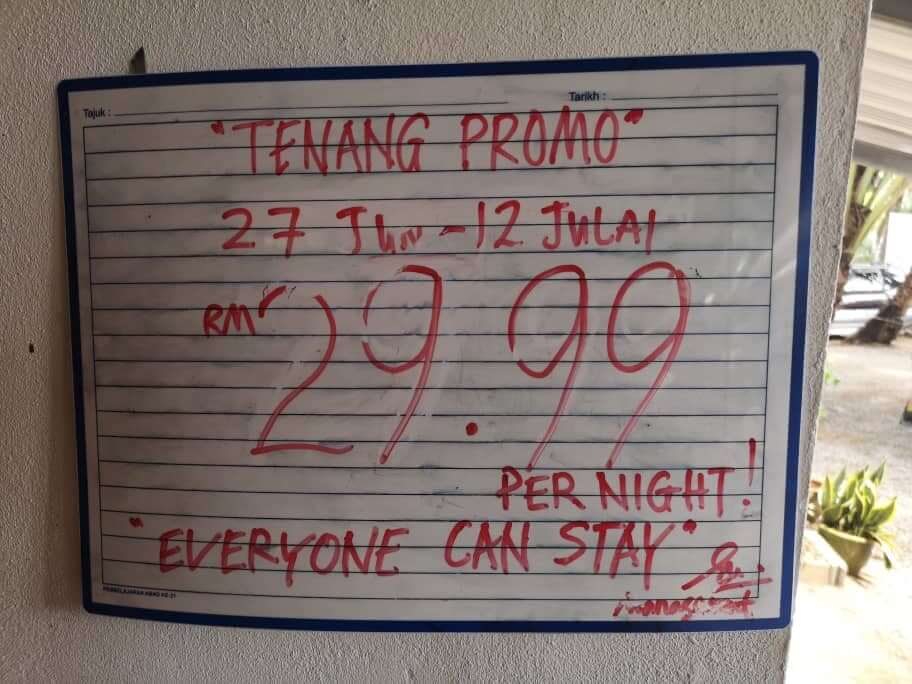 Tajuk :
Tarikh :
"TENANG PROMO"
27 Jun - 12 JULAI
RM 29.99
PER NIGHT!
"EVERYONE CAN STAY"
management
PEMBELAJARAN ABAD KE-21